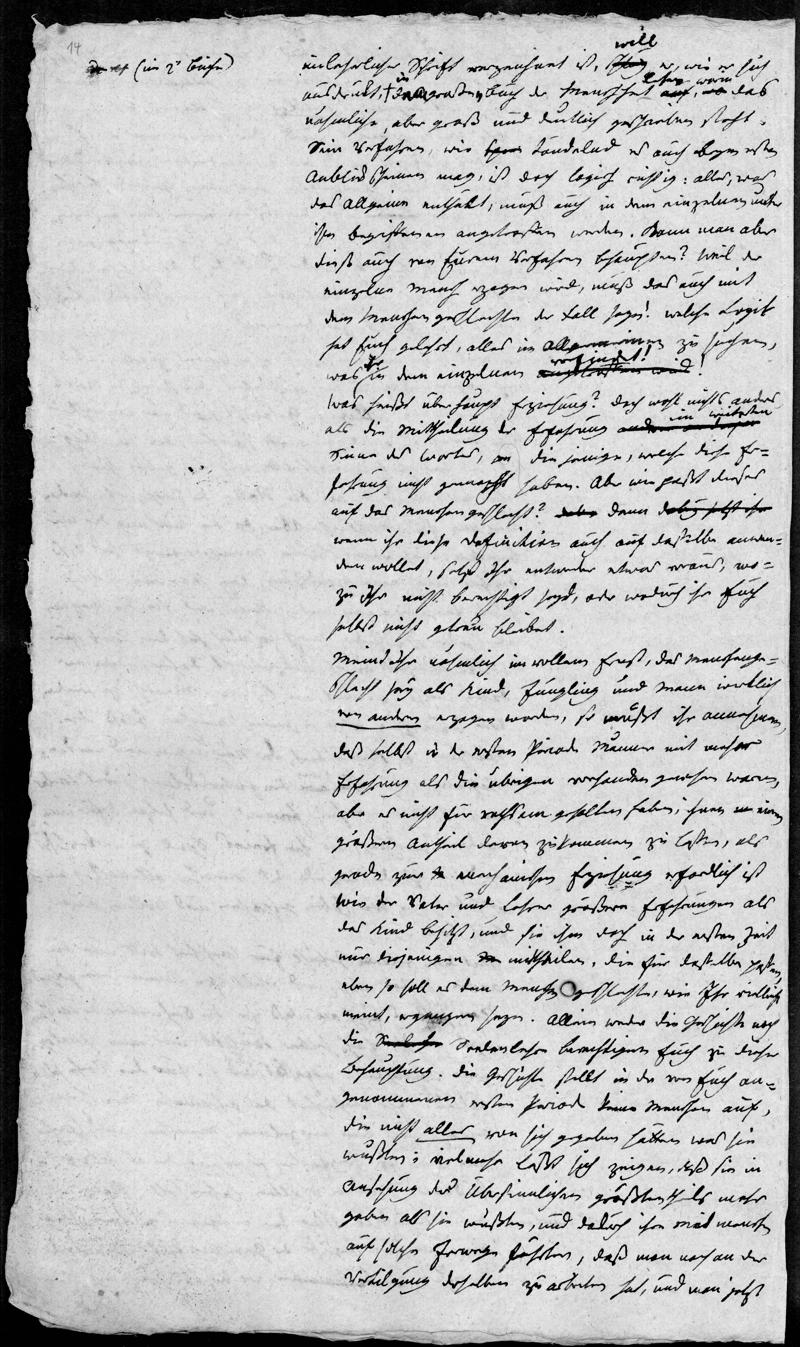 14
(im 2t Buche)
unleserlicher Schrift verzeichnet ist, will er, wie er sich
ausdrückt, † in dem großen Buch der Menschheit, worin das
nähmliche, aber groß und deutlich geschrieben steht.
Sein Verfahren, wie tändelnd es auch beym ersten
Anblick scheinen mag, ist doch logisch richtig: alles, was
das Allgemeine enthält, muß auch in dem einzelnen unter
ihm begriffenen angetroffen werden. Kann man aber
dieß auch von Eurem Verfahren behaupten? Weil der
einzelne Mensch erzogen wird, muß das auch mit
dem Menschengeschlechte der Fall seyn! welche Logik
hat Euch gelehrt, alles im Allgemeinen zu suchen,
was in dem einzelnen
Was heißt überhaupt Erziehung? Doch wohl nichts anders
als die Mittheilung der Erfahrung im weitesten
Sinne des Wortes, an diejenige, welche diese Er=
fahrung nicht gemacht haben. Aber wie paßt dieses
auf das Menschengeschlecht? denn
wenn ihr diese Definition auch auf dasselbe anwen=
den wollet, setzt Ihr entweder etwas voraus, wo=
zu Ihr nicht berechtigt seyd, oder wodurch ihr Euch
selbst nicht getreu bleibet.
Meint Ihr nähmlich im vollem Ernst, das Menschenge=
schlecht sey als Kind, Jüngling und Mann wirklich
von andern erzogen worden, so müßt ihr annehmen,
daß selbst in der ersten Periode Männer mit mehr
Erfahrung als die übrigen vorhanden gewesen waren,
aber es nicht für rathsam gehalten haben, ihnen einen
größern Antheil davon zukommen zu lassen, als
gerade zur Erziehung erforderlich ist
Wie der Vater und Lehrer größere Erfahrungen als
das Kind besitzt, und sie ihm doch in der ersten Zeit
nur diejenigen mittheilen, die für dasselbe passen,
eben so soll es dem Menschengeschlechte, wie Ihr vielleicht
meint, ergangen seyn. Allein weder die Geschichte noch
die Seelenlehre berechtigen Euch zu dieser
Behauptung. Die Geschichte stellt in der von Euch an=
genommenen ersten Periode keine Menschen auf,
die nicht alles von sich gegeben hätten was sie
wußten; vielmehr läßt sich zeigen, daß sie in
Ansehung des Übersinnlichen größtentheils mehr
gaben als sie wußten, und dadurch ihre Mitmenschen
auf solche Irrwege führten, daß man noch an der
Vertilgung derselben zu arbeiten hat, und man jetzt